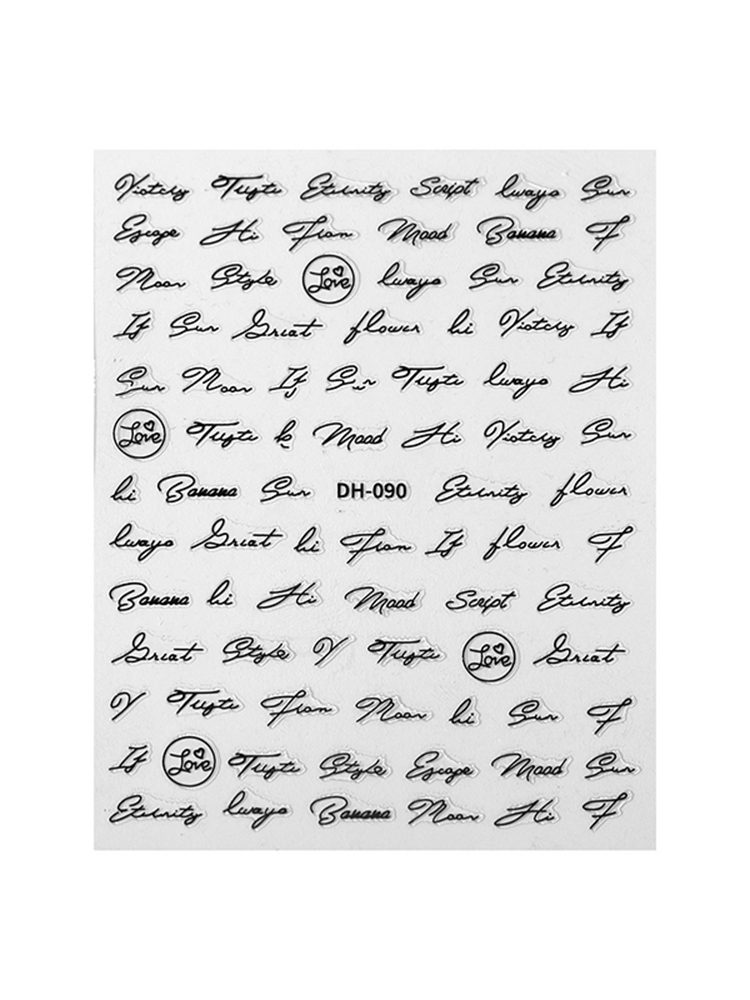 Victory Eternity Script lways Sun
Escape Hi Mood Banana F
Moon Style Love lways Sun Eternity
If Sun Great flower hi Victory If
Sun Moon If Sun lways Hi
Love Mood Hi Victory Sun
hi Banana Sun DH-090 Eternity flower
lways Great hi If flower F
Banana hi Hi Mood Script Eternity
Great Style Y Love Great
Y Moon hi Sun F
If Love Style Escape Mood Sun
Eternity lways Banana Moon Hi F